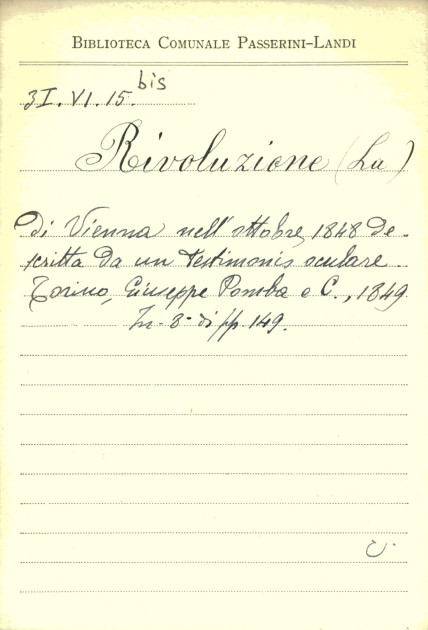 BIBLIOTECA COMUNALE PASSERINI-LANDI
3I.VI.15. bis
Rivoluzione (La)
di Vienna nell'ottobre 1848 de-
scritta da un testimonio oculare.
Torino, Giuseppe Pomba e C., 1849
In-8º di pp. 149.
C.